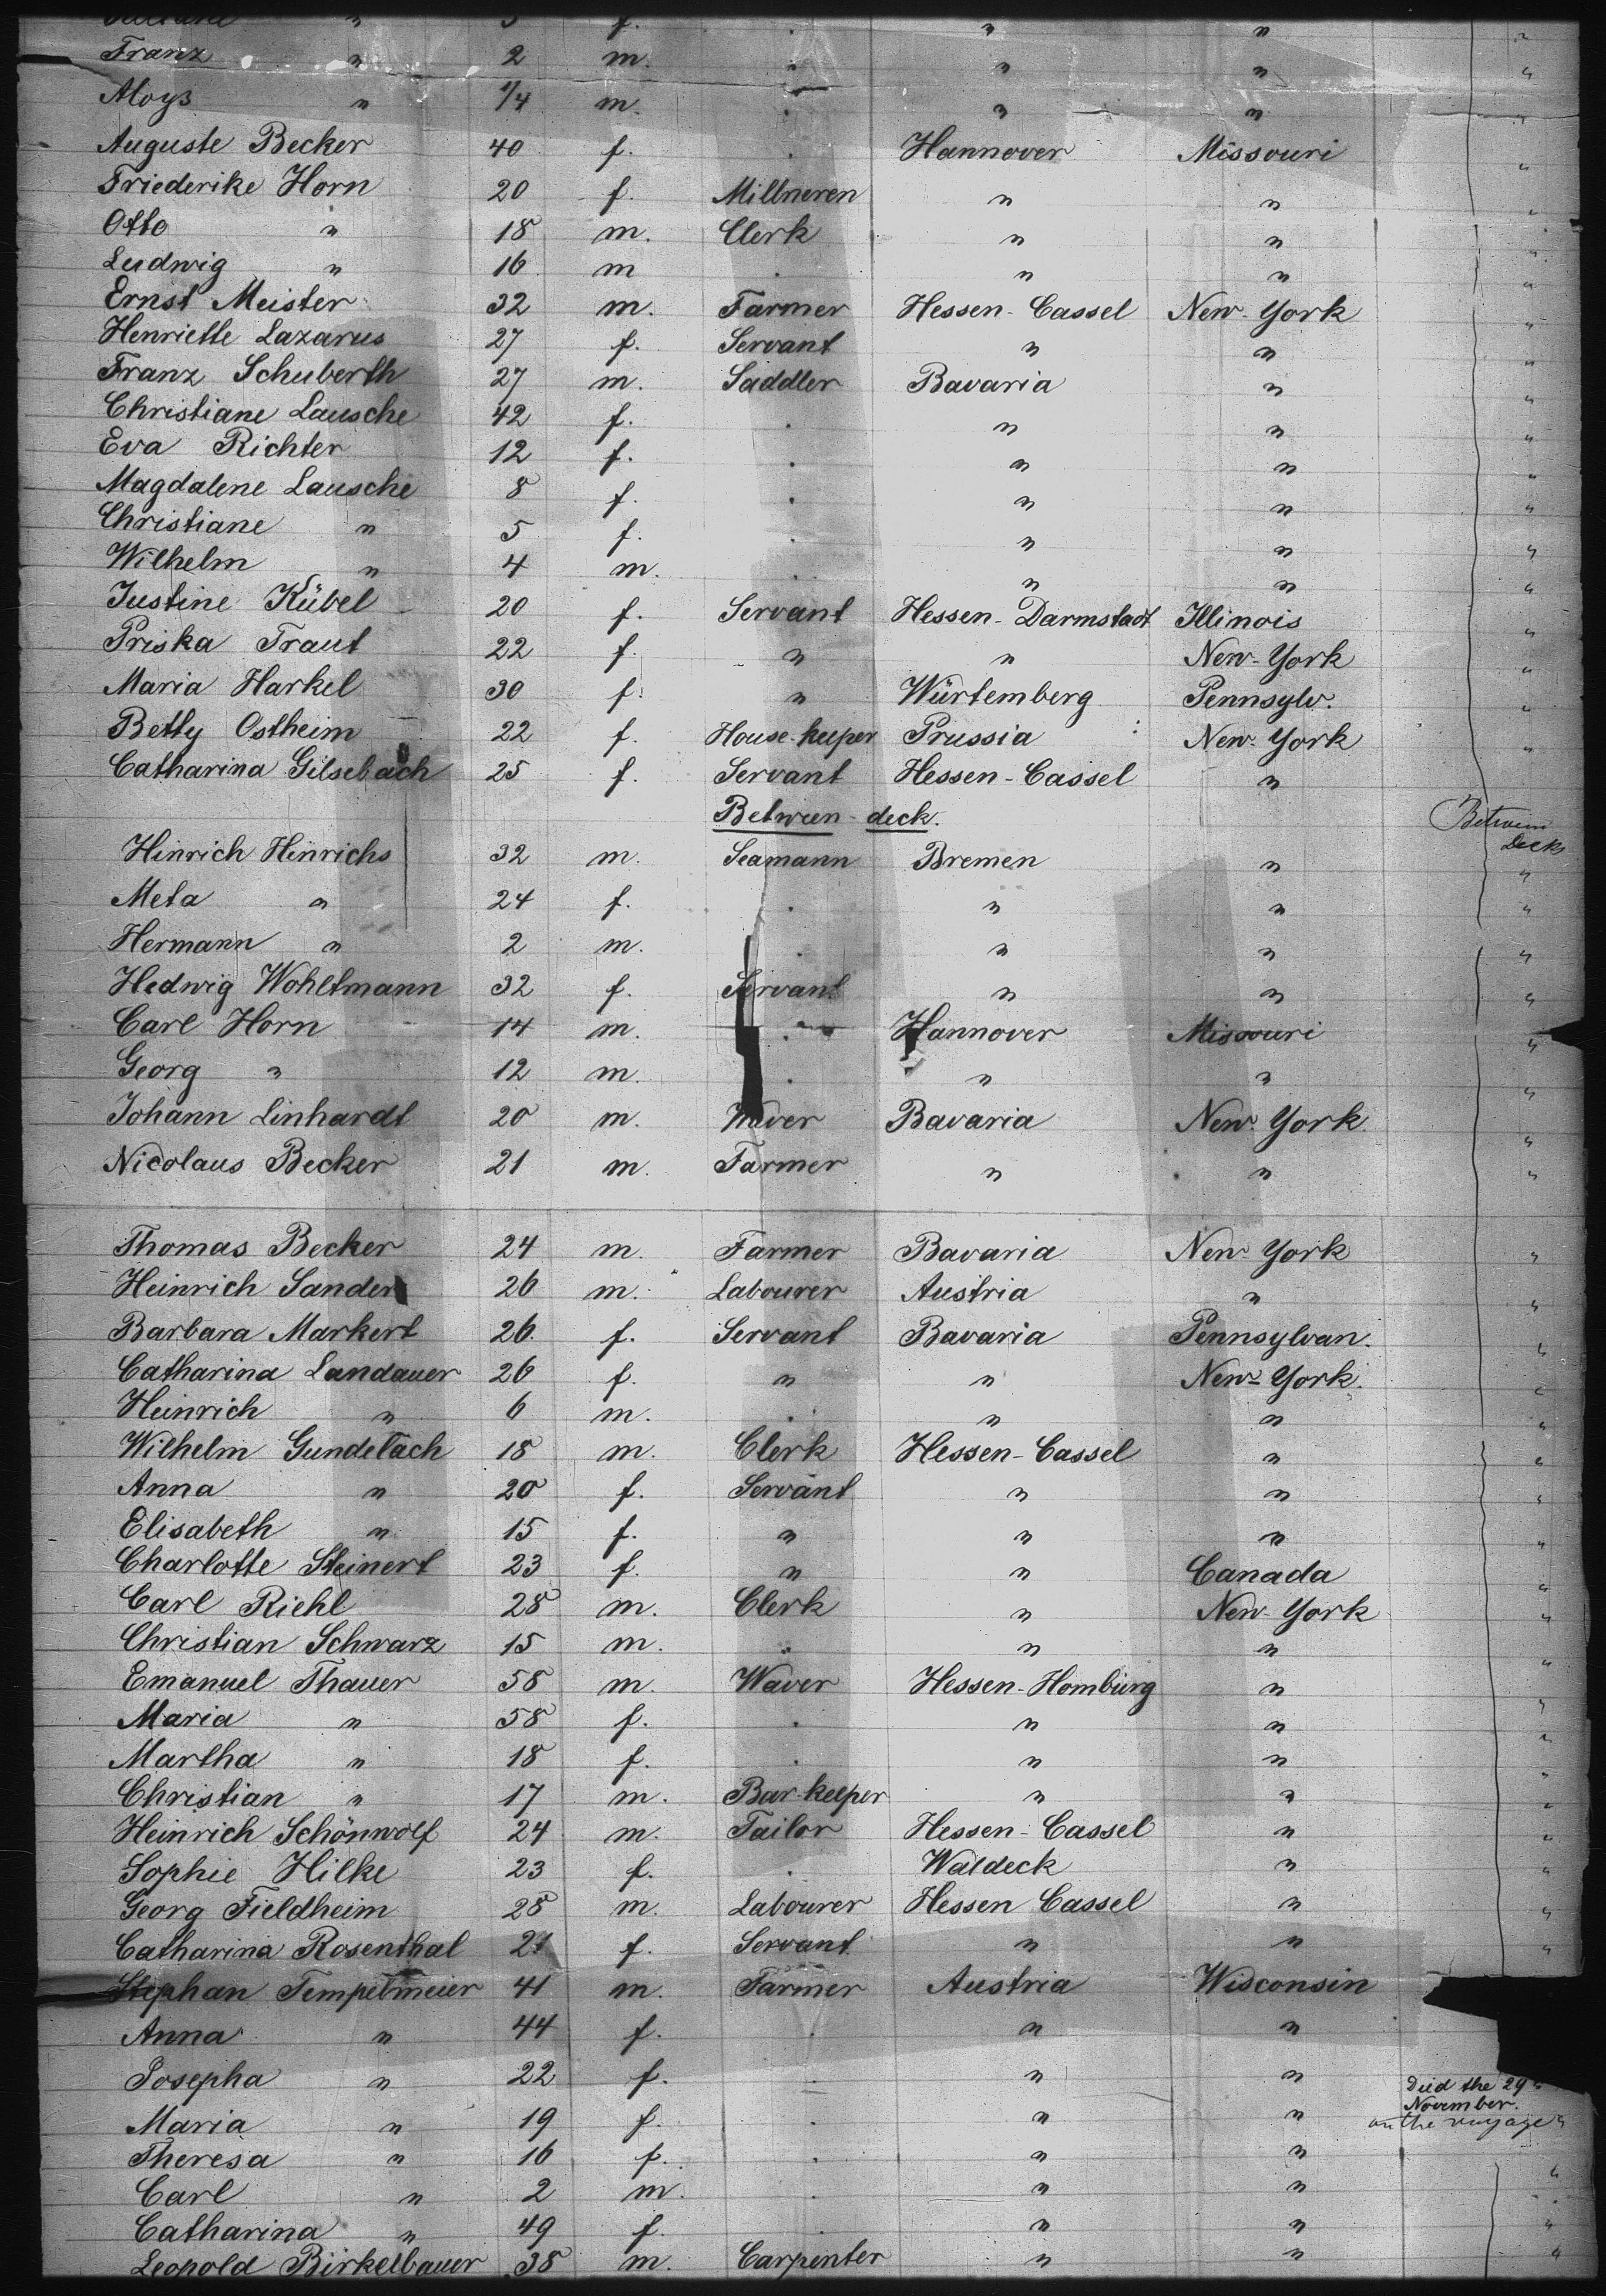 " 3 f. . " " "
Franz " 2 m. . " " "
Aloys " 1/4 m. . " " "
Auguste Becker 40 f. . Hannover Missouri "
Friederike Horn 20 f. Millneren " " "
Otto " 18 m. Clerk " " "
Ludwig " 16 m . " " "
Ernst Meister 32 m. Farmer Hessen-Cassel New-York "
Henriette Lazarus 27 f. Servant " " "
Franz Schuberth 27 m. Saddler Bavaria " "
Christiane Lausche 42 f. . " " "
Eva Richter 12 f. . " " "
Magdalene Lausche 8 f. . " " "
Christiane " 5 f. . " " "
Wilhelm " 4 m. . " " "
Justine Kübel 20 f. Servant Hessen-Darmstadt Illinois "
Priska Traut 22 f. " " New-York "
Maria Harkel 30 f. " Würtemberg Pennsylv. "
Betty Ostheim 22 f. House-keeper Prussia New-York "
Catharina Gilsebach 25 f. Servant Hessen-Cassel "
Between-deck. Between
Deck
Hinrich Hinrichs 32 m. Seamann Bremen " "
Meta " 24 f. . " " "
Hermann " 2 m. . " " "
Hedwig Wohltmann 32 f. Servant " " "
Carl Horn 14 m. . Hannover Missouri "
Georg " 12 m. . " " "
Johann Linhardt 20 m. Waver Bavaria New-York "
Nicolaus Becker 21 m. Farmer " " "
Thomas Becker 24 m. Farmer Bavaria New-York "
Heinrich Sander 26 m. Labourer Austria " "
Barbara Markert 26 f. Servant Bavaria Pennsylvan. "
Catharina Landauer 26 f. " " New-York. "
Heinrich " 6 m. . " " "
Wilhelm Gundelach 18 m. Clerk Hessen-Cassel " "
Anna " 20 f. Servant " " "
Elisabeth " 15 f. " " " "
Charlotte Steinert 23 f. " " Canada "
Carl Riehl 28 m. Clerk " New-York "
Christian Schwarz 15 m. . " " "
Emanuel Thauer 58 m. Waver Hessen-Homburg " "
Maria " 58 f. . " " "
Martha " 18 f. . " " "
Christian " 17 m. Bar-keeper " " "
Heinrich Schönwolf 24 m. Tailor Hessen-Cassel " "
Sophie Hilke 23 f. . Waldeck " "
Georg Fieldheim 28 m. Labourer Hessen Cassel " "
Catharina Rosenthal 21 f. Servant " " "
Stephan Tempelmeier 41 m. Farmer Austria Wisconsin
Anna " 44 f. . " "
Josepha " 22 f. . " " Died the 29"
November.
Maria " 19 f. . " " on the voyage "
Theresa " 16 f. . " "
Carl " 2 m. . " " "
Catharina " 49 f. . " " "
Leopold Birkelbauer 38 m. Carpenter " " "